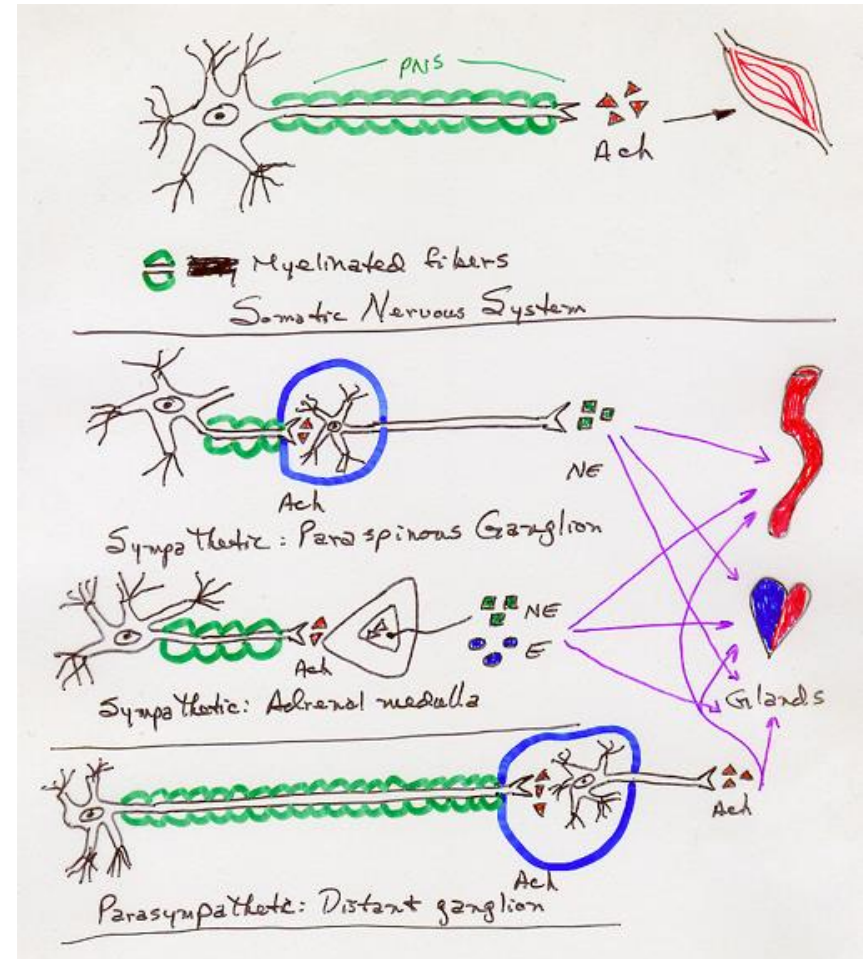 PNS
Ach
Myelinated fibers
Somatic Nervous System
NE
Ach
Sympathetic: Paraspinous Ganglion
NE
E
Ach
Sympathetic: Adrenal medulla
Glands
Ach
Ach
Parasympathetic: Distant ganglion